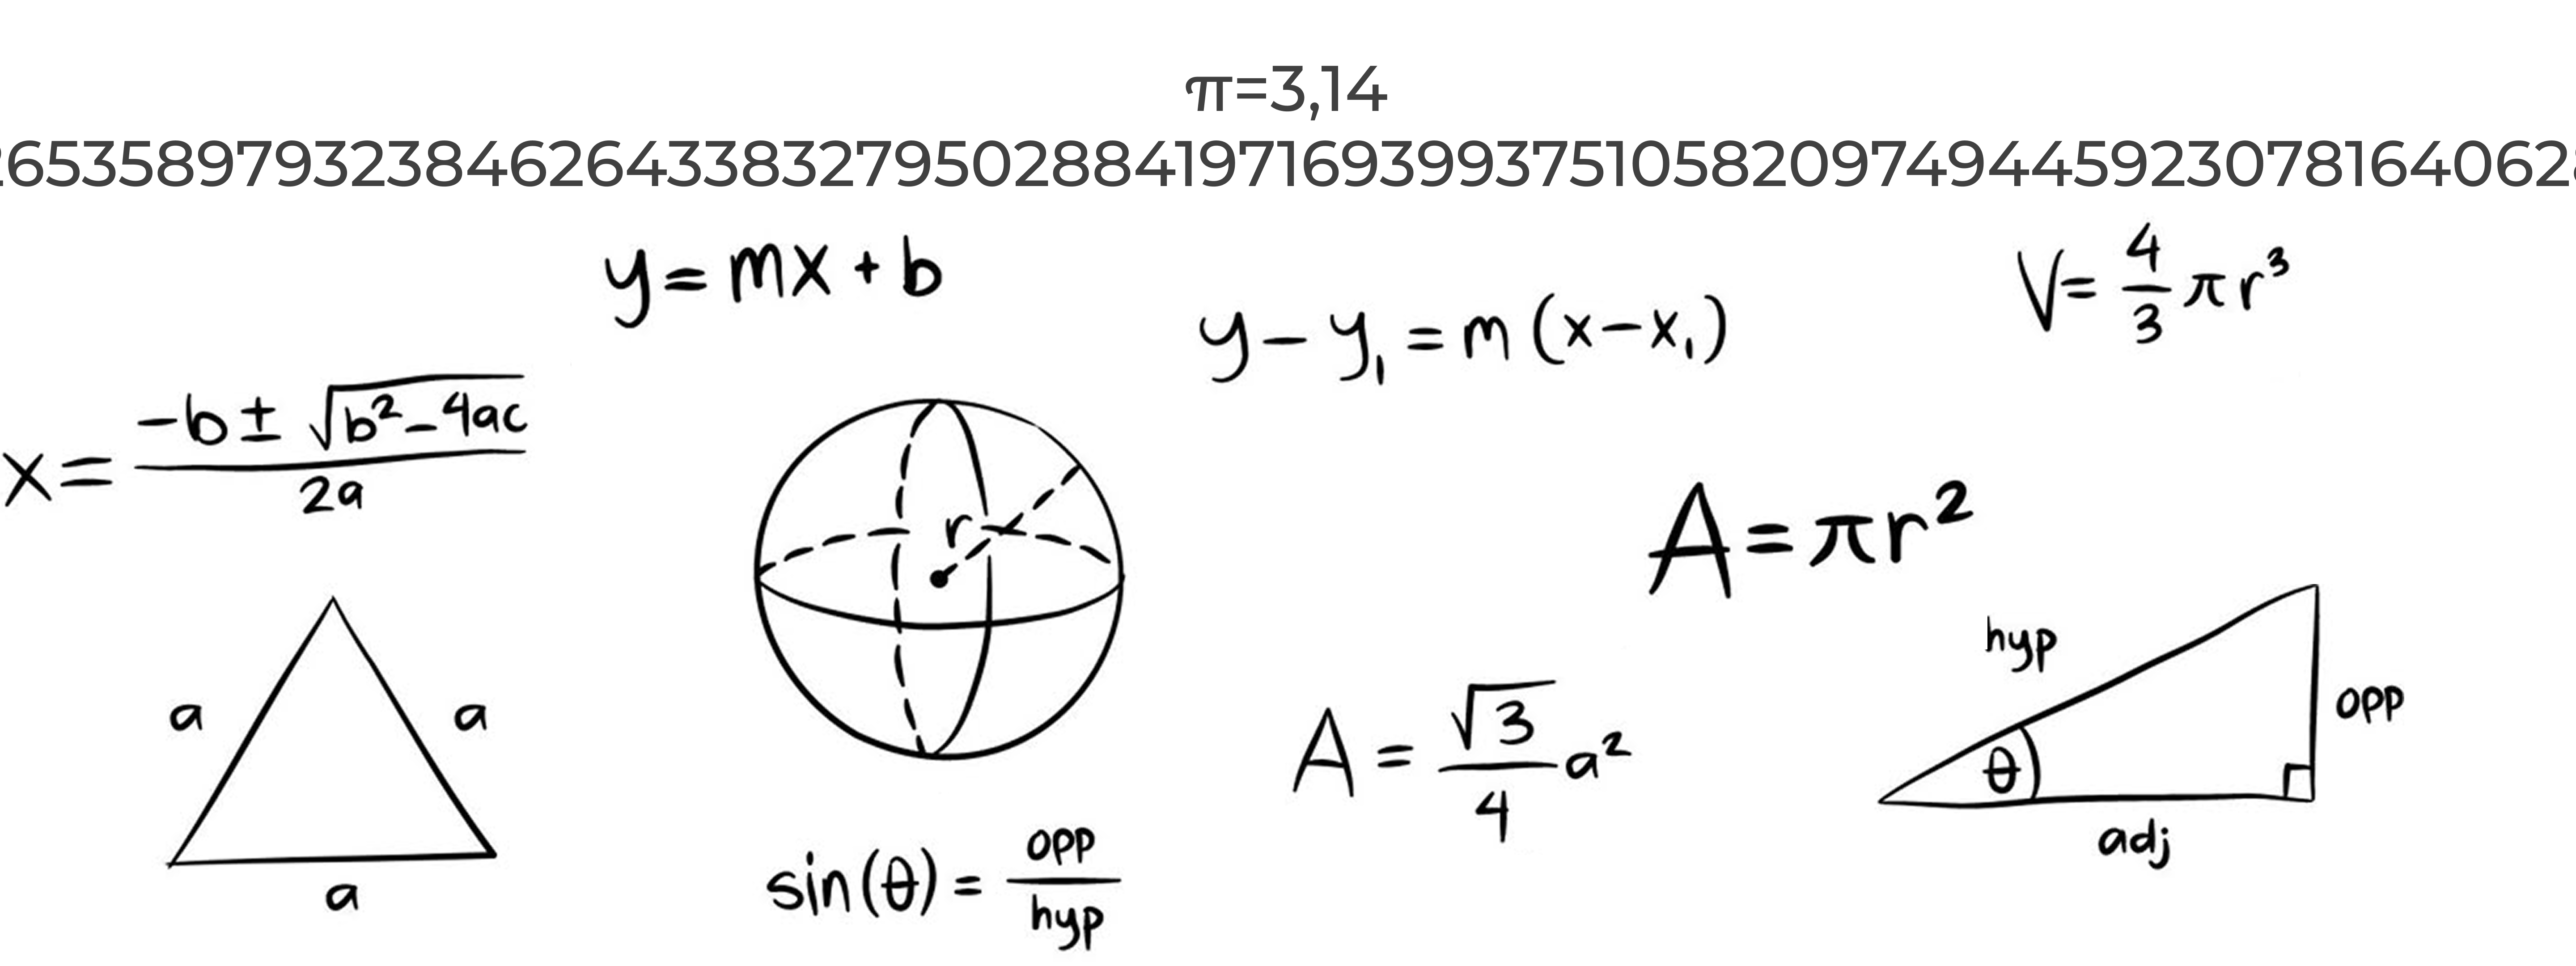 π=3,14
26535897932384626433832795028841971693993751058209749445923078164062
y = mx + b
V = 4/3 πr³
y - y₁ = m (x - x₁)
x = (-b ± √(b² - 4ac)) / 2a
r
A = πr²
a
a
a
A = √3/4 a²
hyp
opp
θ
adj
sin(θ) = opp/hyp